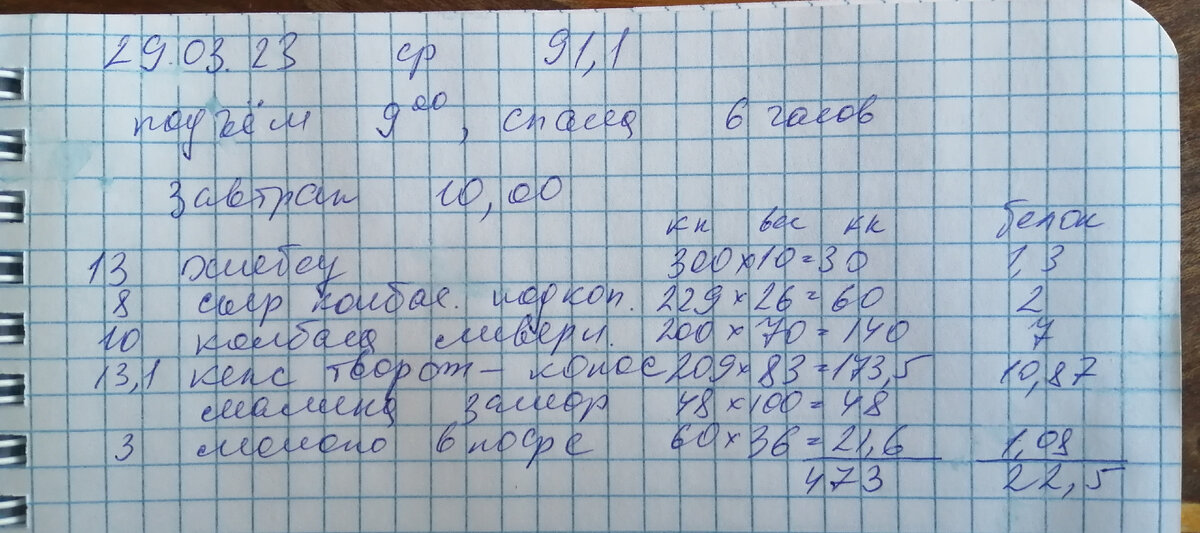 29.03.23 ср 91,1
подъём 9⁰⁰, спала 6 часов
Завтрак 10,00
кк вес кк белок
13 хлебец 300×10=30 1,3
8 сыр колбас. подкоп. 229×26=60 2
10 колбаса ливерн. 200×70=140 7
13,1 кекс творож–кокос 209×83=173,5 10,87
малина замор 48×100=48
3 молоко в кофе 60×36=21,6 1,08
473 22,5